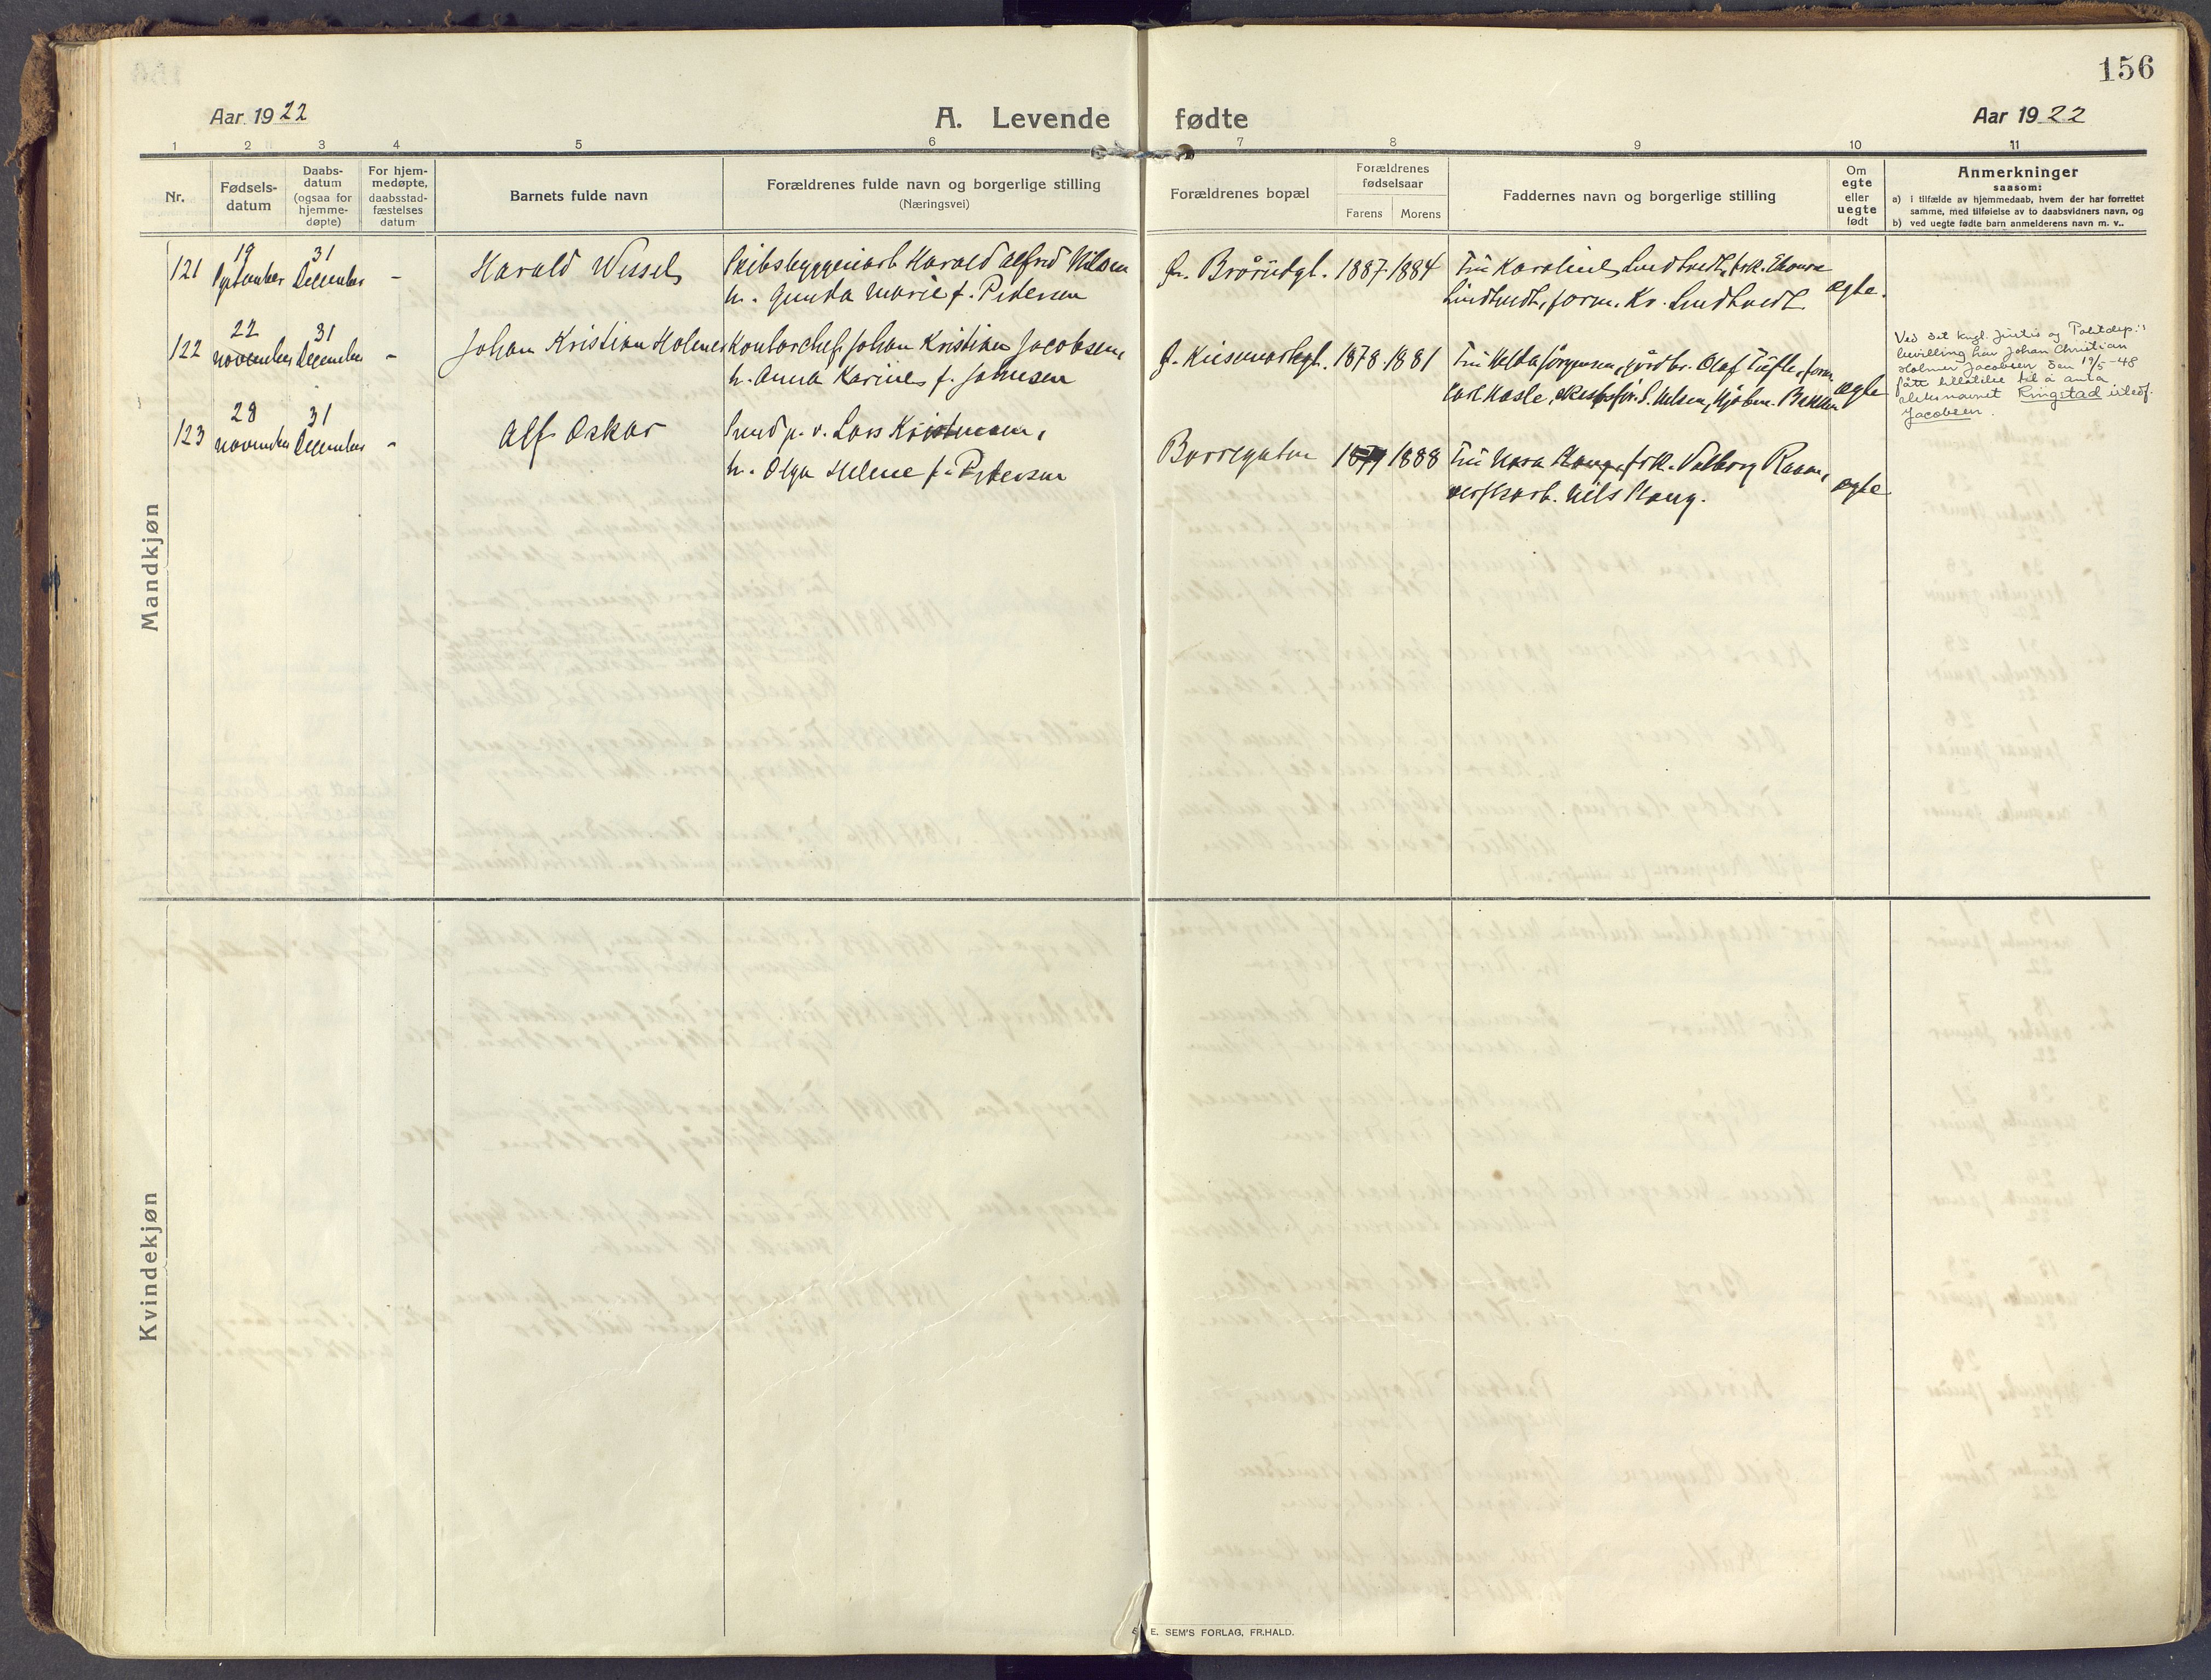 156
Aar 1922
A. Levende fødte
Aar 1922
1 2 3 4 5 6 7 8 9 10 11
Nr.
Fødsels-
datum
Daabs-
datum
(ogsaa for
hjemme-
døpte)
For hjem-
medøpte,
daabsstad-
fæstelses
datum
Barnets fulde navn
Forældrenes fulde navn og borgerlige stilling
(Næringsvei)
Forældrenes bopæl
Forældrenes
fødselsaar
Farens Morens
Faddernes navn og borgerlige stilling
Om
egte
eller
uegte
født
Anmerkninger
saasom:
a) i tilfælde av hjemmedaab, hvem der har forrettet
samme, med tilføielse av to daabsvidners navn, og
b) ved uegte fødte barn anmelderens navn m. v..
Mandkjøn
19 31
121 September December - Harald Wessel Skibsbyggeriarb Harald Alfred Nilsen 1887 1884 Fru Karoline Lindtvedt, frk.
h. Gunda Marie f. Pedersen Lindtvedt, form. Kr. Lindtvedt egte.
22 31
122 November December - Johan Kristian Holmer Kontorchef Johan Kristian Jacobsen, 1878 1881 Fru Jørgensen, Olaf Tufte, form.
h. Anna Karine f. Johnsen Karl Kasle, S. Nilsen, Bakken egte
Ved det kngl. Justis og Politidep.'s
bevilling har Johan Christian
Holmer Jacobsen den 19/5-48
fått tillatelse til å anta
slektsnavnet Ringstad istedf.
Jacobsen.
28 31
123 November December - Alf Oskar Lars Kristensen, Borregaten 1888 Fru Nora Haug, frk. Valborg Raam,
h. Olga Helene f. Pedersen verftsarb. Nils Haug. egte
Kvindekjøn
E. SEM'S FORLAG, FR.HALD.